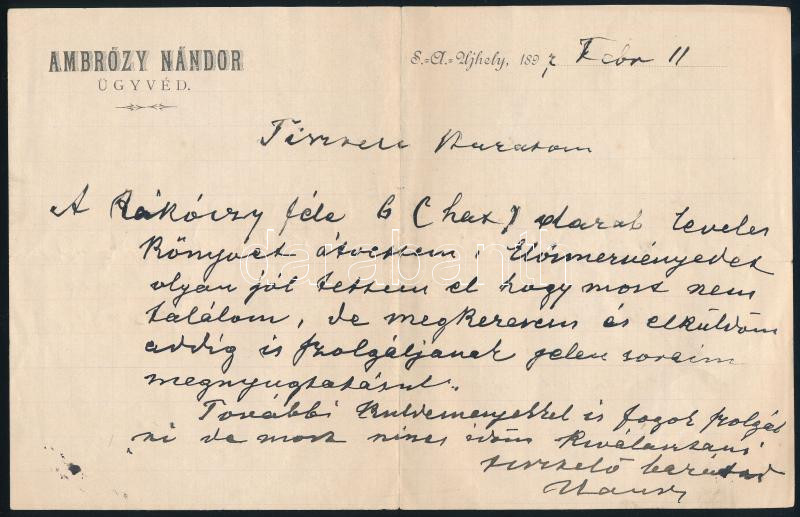 AMBRÓZY NÁNDOR
ÜGYVÉD.
S.=A.=Ujhely, 1897 Febr 11
Tisztelt Barátom
A Rákóczy féle 6 (hat) darab leveles
könyvét átvettem. Elösmervényedet
olyan jól tettem el hogy most nem
találom, de megkeresem és elküldöm
addig is szolgáljanak jelen soraim
megnyugtatásul.
További küldeményekkel is fogok szolgál
ni de most nincs időm kiválasztani
tisztelő barátod
Nándor
darabanth